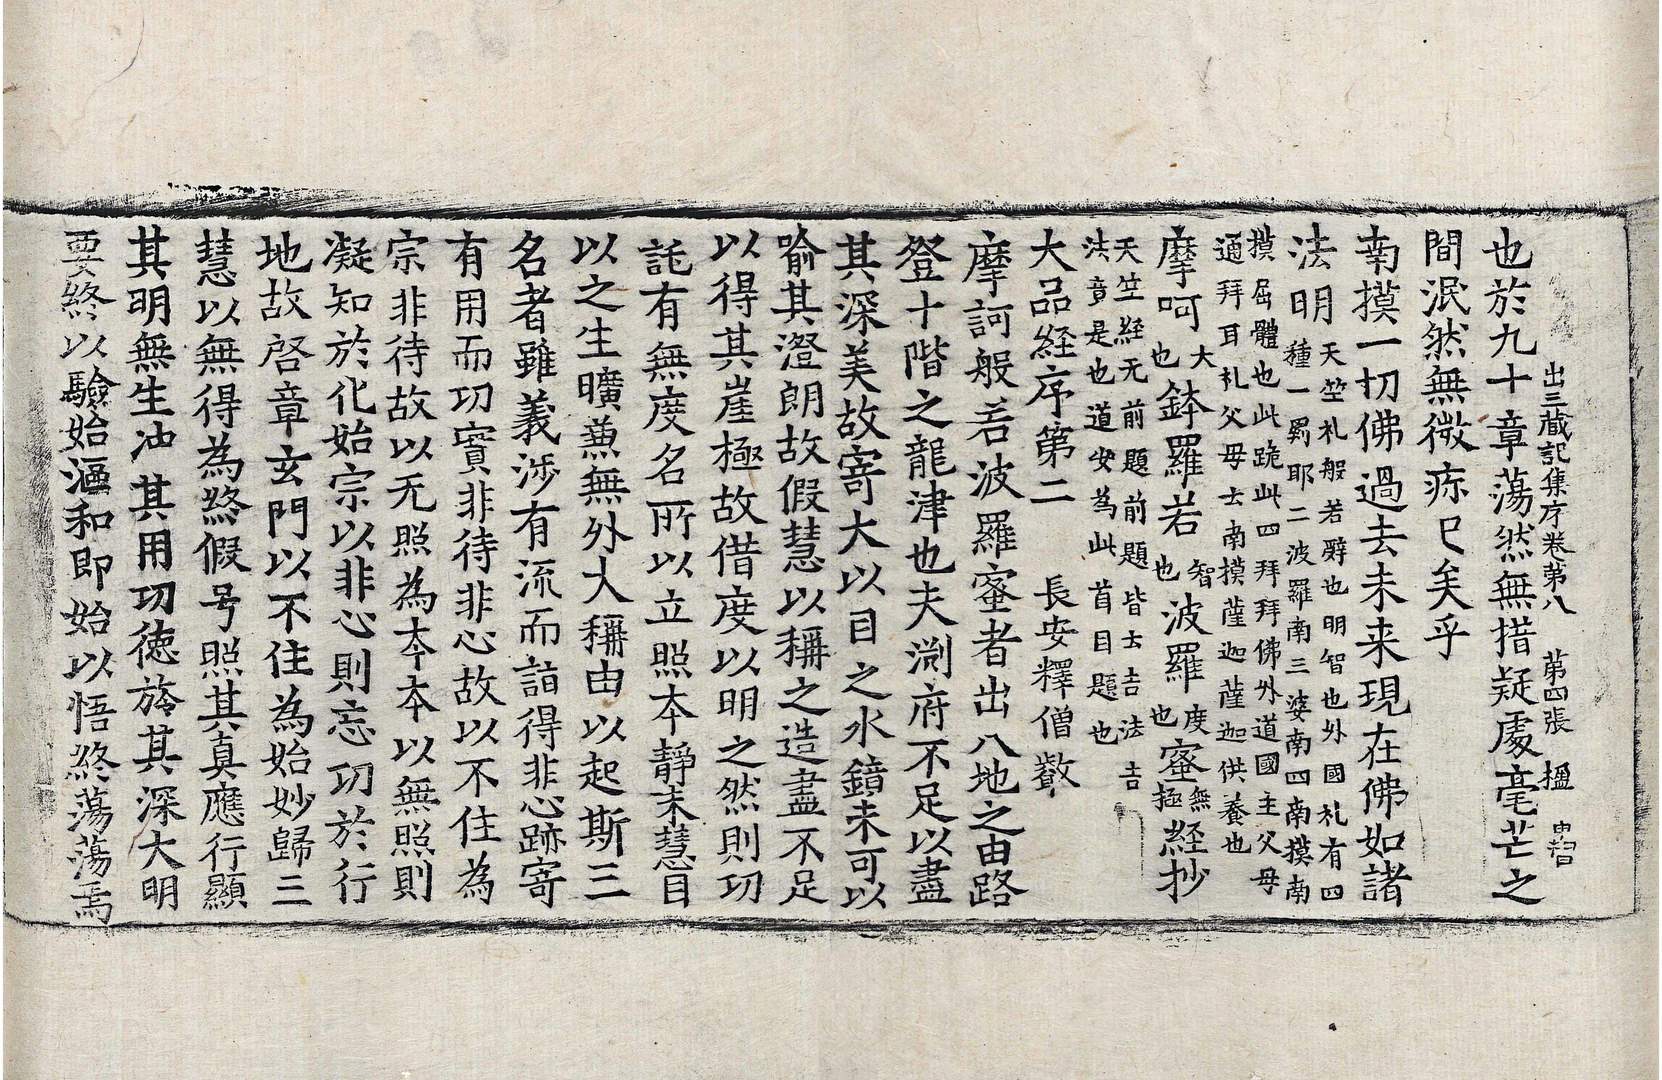 出三蔵記集序卷第八 第四張 楹
也於九十章蕩然無措疑處毫芒之
間泯然無微疹已矣乎
南摸一切佛過去未来現在佛如諸
法明天竺礼般若辭也明智也外國礼有四
種一罽耶二波羅南三婆南四南摸南
摸屈體也此跪此四拜拜佛外道國主父母
通拜耳礼父母士南摸薩迦薩迦供養也
摩呵大也鉢羅若智也波羅度也蜜無極経抄
天竺経无前題前題皆士吉法吉
法竟是也道安為此首目題也
大品経序第二 長安釋僧叡
摩訶般若波羅蜜者出八地之由路
登十階之龍津也夫渊府不足以盡
其深美故寄大以目之水鏡未可以
喻其澄朗故假慧以稱之造盡不足
以得其崖極故借度以明之然則功
託有無度名所以立照夲靜末慧目
以之生曠兼無外大稱由以起斯三
名者雖義涉有流而詣得非心跡寄
有用而功實非待非心故以不住為
宗非待故以无照為夲夲以無照則
凝知於化始宗以非心則忘功於行
地故啓章玄門以不住為始妙歸三
慧以無得為終假号照其真應行顯
其明無生冲其用功德旍其深大明
要終以驗始漚和即始以悟終蕩蕩焉